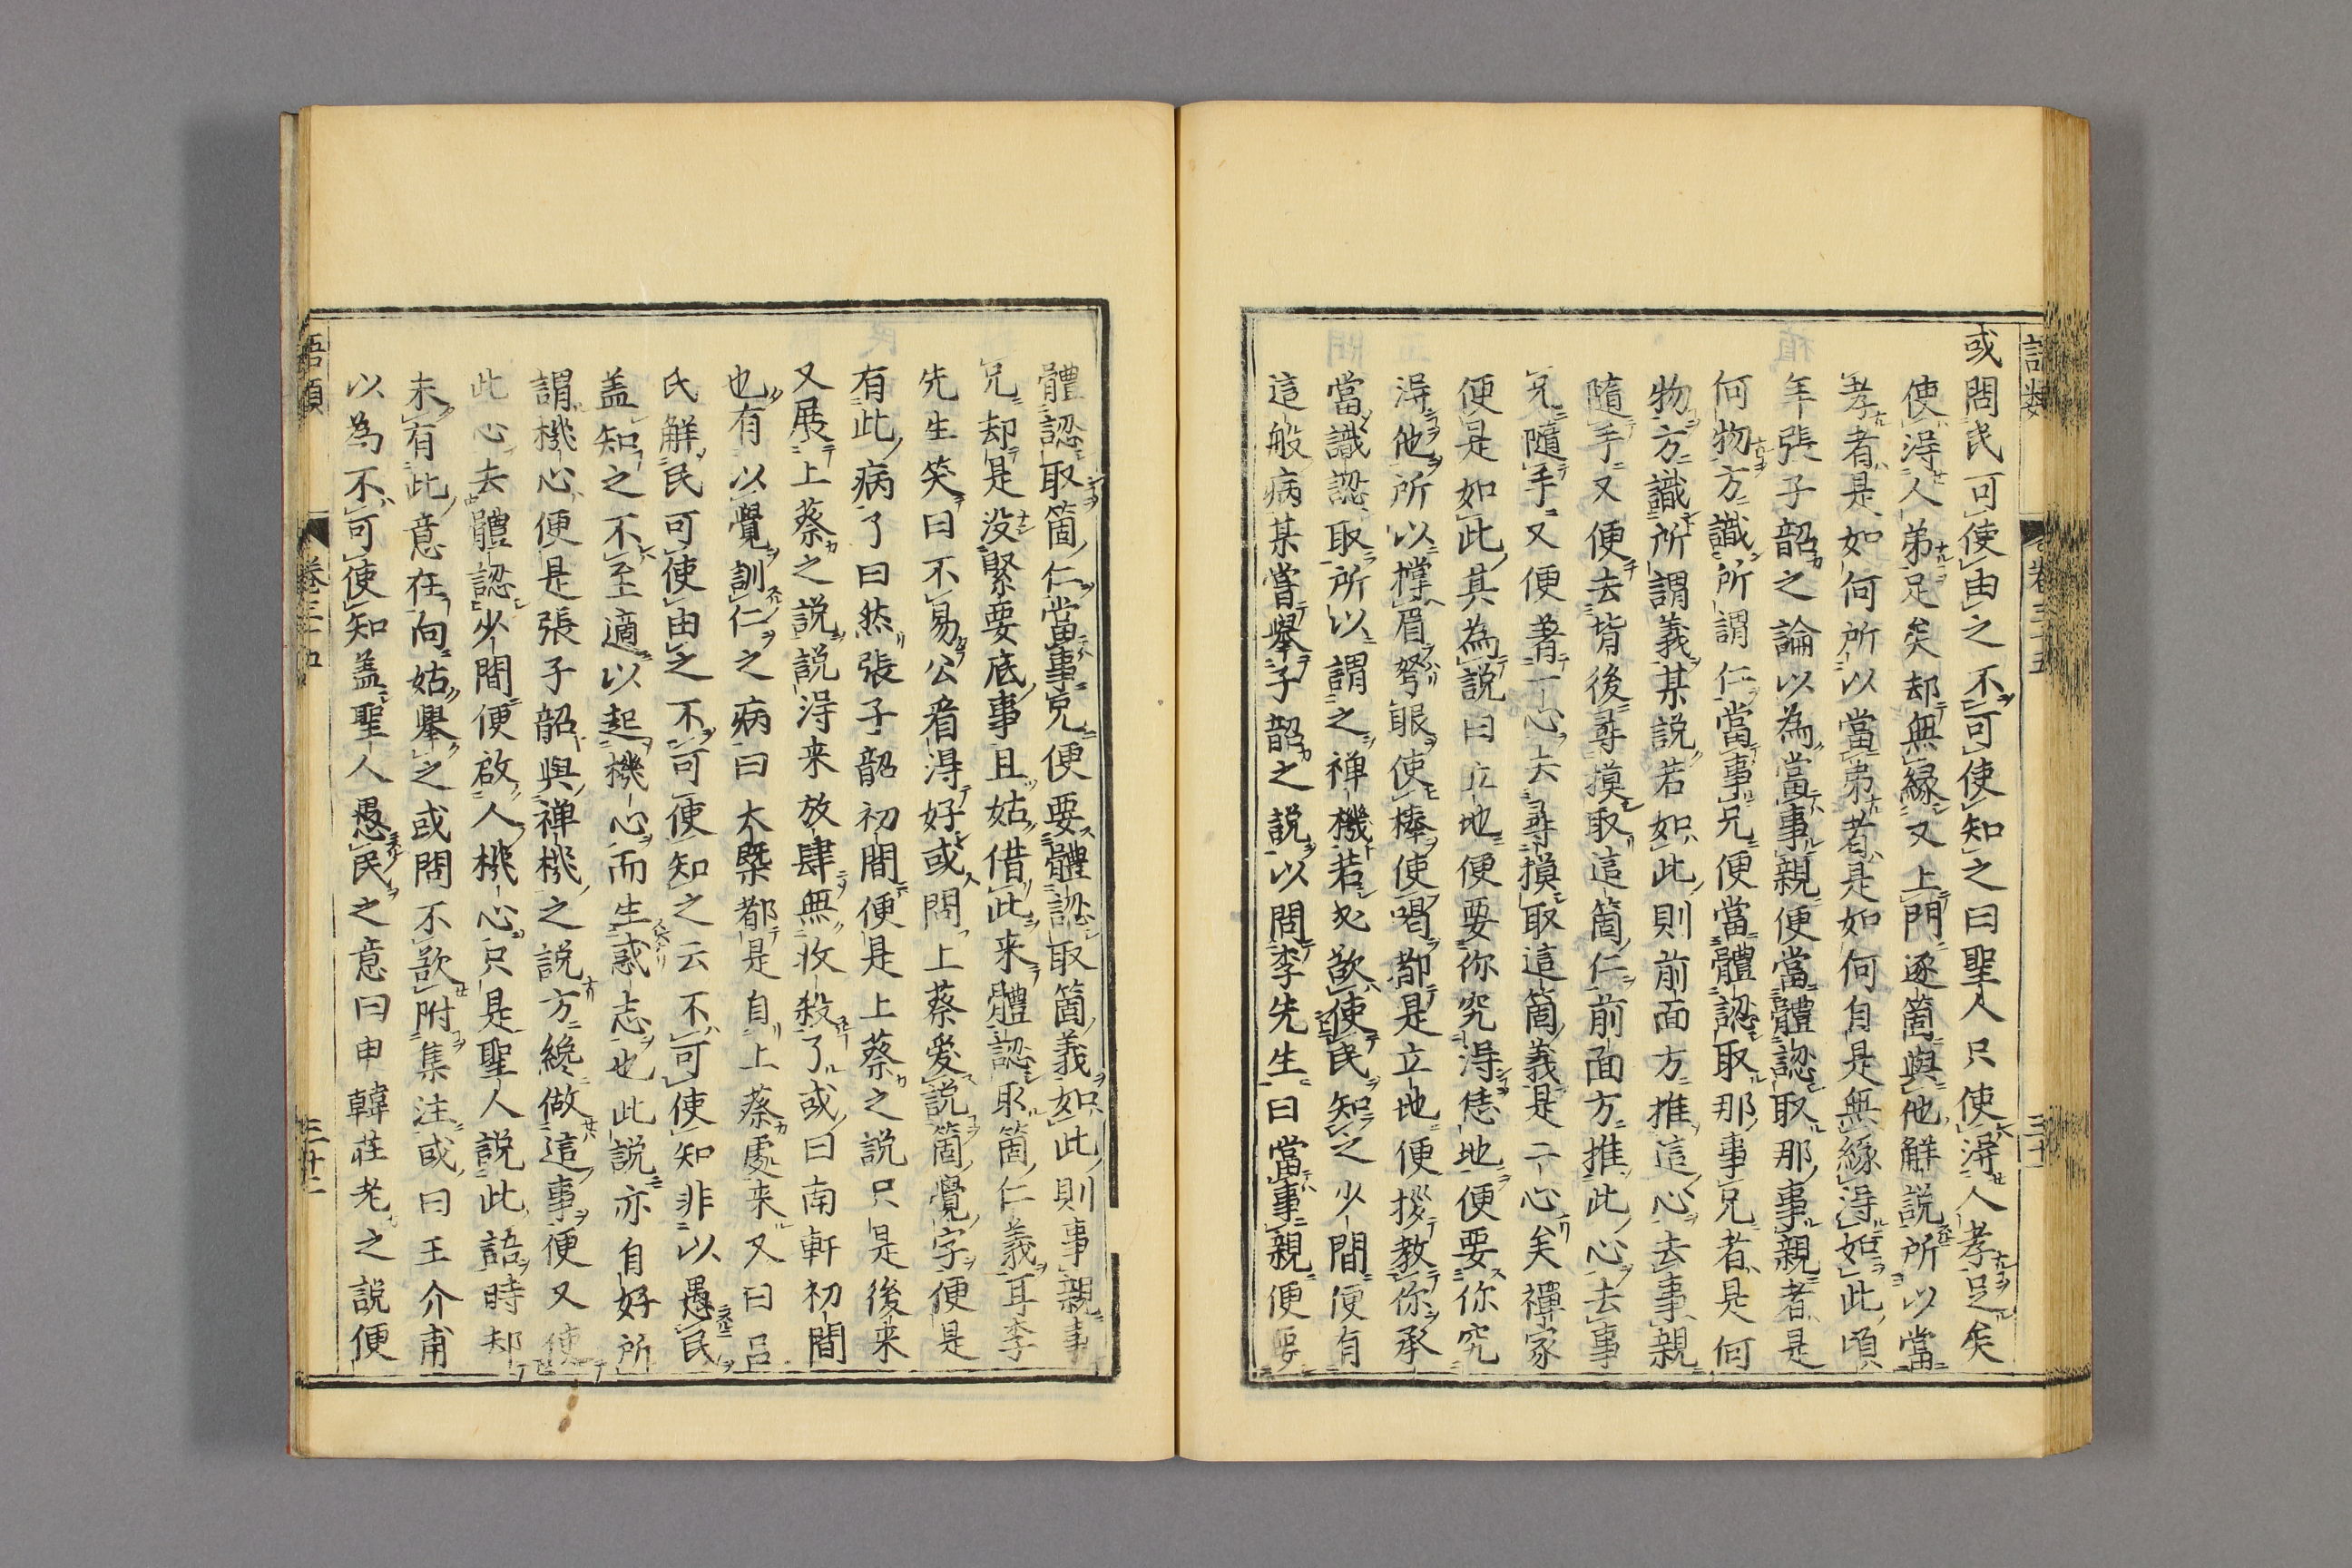 語類
卷三十五
三十一
或問民可使由之不可使知之曰聖人只使得人孝足矣
使得人弟足矣却無緣又上門逐箇與他解説所以當
孝者是如何所以當弟者是如何自是無緣得如此頃
年張子韶之論以為當事親便當體認取那事親者是
何物方識所謂仁當事兄便當體認取那事兄者是何
物方識所謂義某説若如此則前面方推這心去事親
隨手又便去背後尋摸取這箇仁前面方推此心去事
兄隨手又便著一心去尋摸取這箇義是二心矣禪家
便是如此其為説曰立地便要你究得恁地便要你究
得他所以撑眉弩眼使棒使喝都是立地便拶教你承
當識認取所以謂之禅機若必欲使民知之少間便有
這般病某嘗擧子韶之説以問李先生曰當事親便要
體認取箇仁當事兄便要體認取箇義如此則事親事
兄却是没緊要底事且姑借此来體認取箇仁義耳李
先生笑曰不易公看得好或問上蔡爱説箇覺字便是
有此病了曰然張子韶初間便是上蔡之説只是後来
又展上蔡之説説得来放肆無收殺了或曰南軒初間
也有以覺訓仁之病曰大槩都是自上蔡處来又曰呂
氏解民可使由之不可使知之云不可使知非以愚民
盖知之不至適以起機心而生惑志也此説亦自好所
謂機心便是張子韶與禅機之説方纔做這事便又使
此心去體認少間便啟人機心只是聖人説此語時却
未有此意在向姑擧之或問不欲附集注或曰王介甫
以為不可使知盖聖人愚民之意曰申韓莊老之説便
語類
卷三十五
三十二